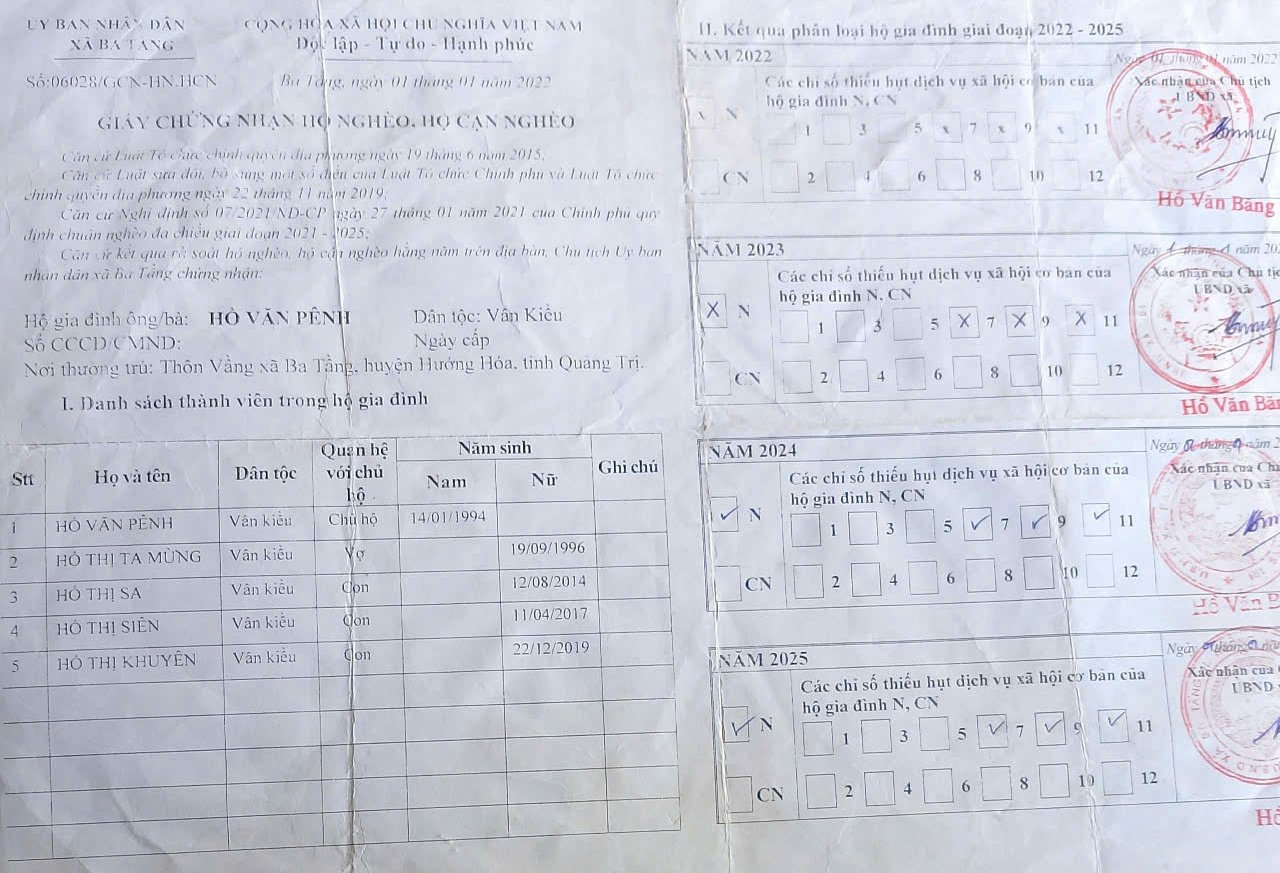 ỦY BAN NHÂN DÂN
XÃ BA TẦNG
CỘNG HÒA XÃ HỘI CHỦ NGHĨA VIỆT NAM
Độc lập - Tự do - Hạnh phúc
Số:06028/GCN-HN.HCN
Ba Tầng, ngày 01 tháng 01 năm 2022
GIẤY CHỨNG NHẬN HỘ NGHÈO, HỘ CẬN NGHÈO
Căn cứ Luật Tổ chức chính quyền địa phương ngày 19 tháng 6 năm 2015;
Căn cứ Luật sửa đổi, bổ sung một số điều của Luật Tổ chức Chính phủ và Luật Tổ chức
chính quyền địa phương ngày 22 tháng 11 năm 2019;
Căn cứ Nghị định số 07/2021/NĐ-CP ngày 27 tháng 01 năm 2021 của Chính phủ quy
định chuẩn nghèo đa chiều giai đoạn 2021 - 2025;
Căn cứ kết quả rà soát hộ nghèo, hộ cận nghèo hằng năm trên địa bàn, Chủ tịch Ủy ban
nhân dân xã Ba Tầng chứng nhận:
Hộ gia đình ông/bà: HỒ VĂN PÊNH Dân tộc: Vân Kiều
Số CCCD/CMND: Ngày cấp
Nơi thường trú: Thôn Vầng xã Ba Tầng, huyện Hướng Hóa, tỉnh Quảng Trị.
I. Danh sách thành viên trong hộ gia đình
Stt Họ và tên Dân tộc Quan hệ với chủ hộ Năm sinh Ghi chú
Nam Nữ
1 HỒ VĂN PÊNH Vân kiều Chủ hộ 14/01/1994
2 HỒ THỊ TA MỪNG Vân kiều Vợ 19/09/1996
3 HỒ THỊ SA Vân kiều Con 12/08/2014
4 HỒ THỊ SIÊN Vân kiều Con 11/04/2017
5 HỒ THỊ KHUYÊN Vân kiều Con 22/12/2019
II. Kết quả phân loại hộ gia đình giai đoạn 2022 - 2025
NĂM 2022
Ngày 01 tháng 01 năm 2022
Các chỉ số thiếu hụt dịch vụ xã hội cơ bản của
hộ gia đình N, CN
Xác nhận của Chủ tịch
UBND xã
x N 1 3 5 x 7 x 9 x 11
CN 2 4 6 8 10 12
Hồ Văn Băng
NĂM 2023
Ngày 1 tháng 1 năm 202
Các chỉ số thiếu hụt dịch vụ xã hội cơ bản của
hộ gia đình N, CN
Xác nhận của Chủ tịc
UBND xã
X N 1 3 5 X 7 X 9 X 11
CN 2 4 6 8 10 12
Hồ Văn Băn
NĂM 2024
Ngày 01 tháng 01 năm 2
Các chỉ số thiếu hụt dịch vụ xã hội cơ bản của
hộ gia đình N, CN
Xác nhận của Chủ
UBND xã
✓ N 1 3 5 ✓ 7 ✓ 9 ✓ 11
CN 2 4 6 8 10 12
Hồ Văn B
NĂM 2025
Ngày tháng năm
Các chỉ số thiếu hụt dịch vụ xã hội cơ bản của
hộ gia đình N, CN
Xác nhận của
UBND xã
✓ N 1 3 5 ✓ 7 ✓ 9 ✓ 11
CN 2 4 6 8 10 12
Hồ